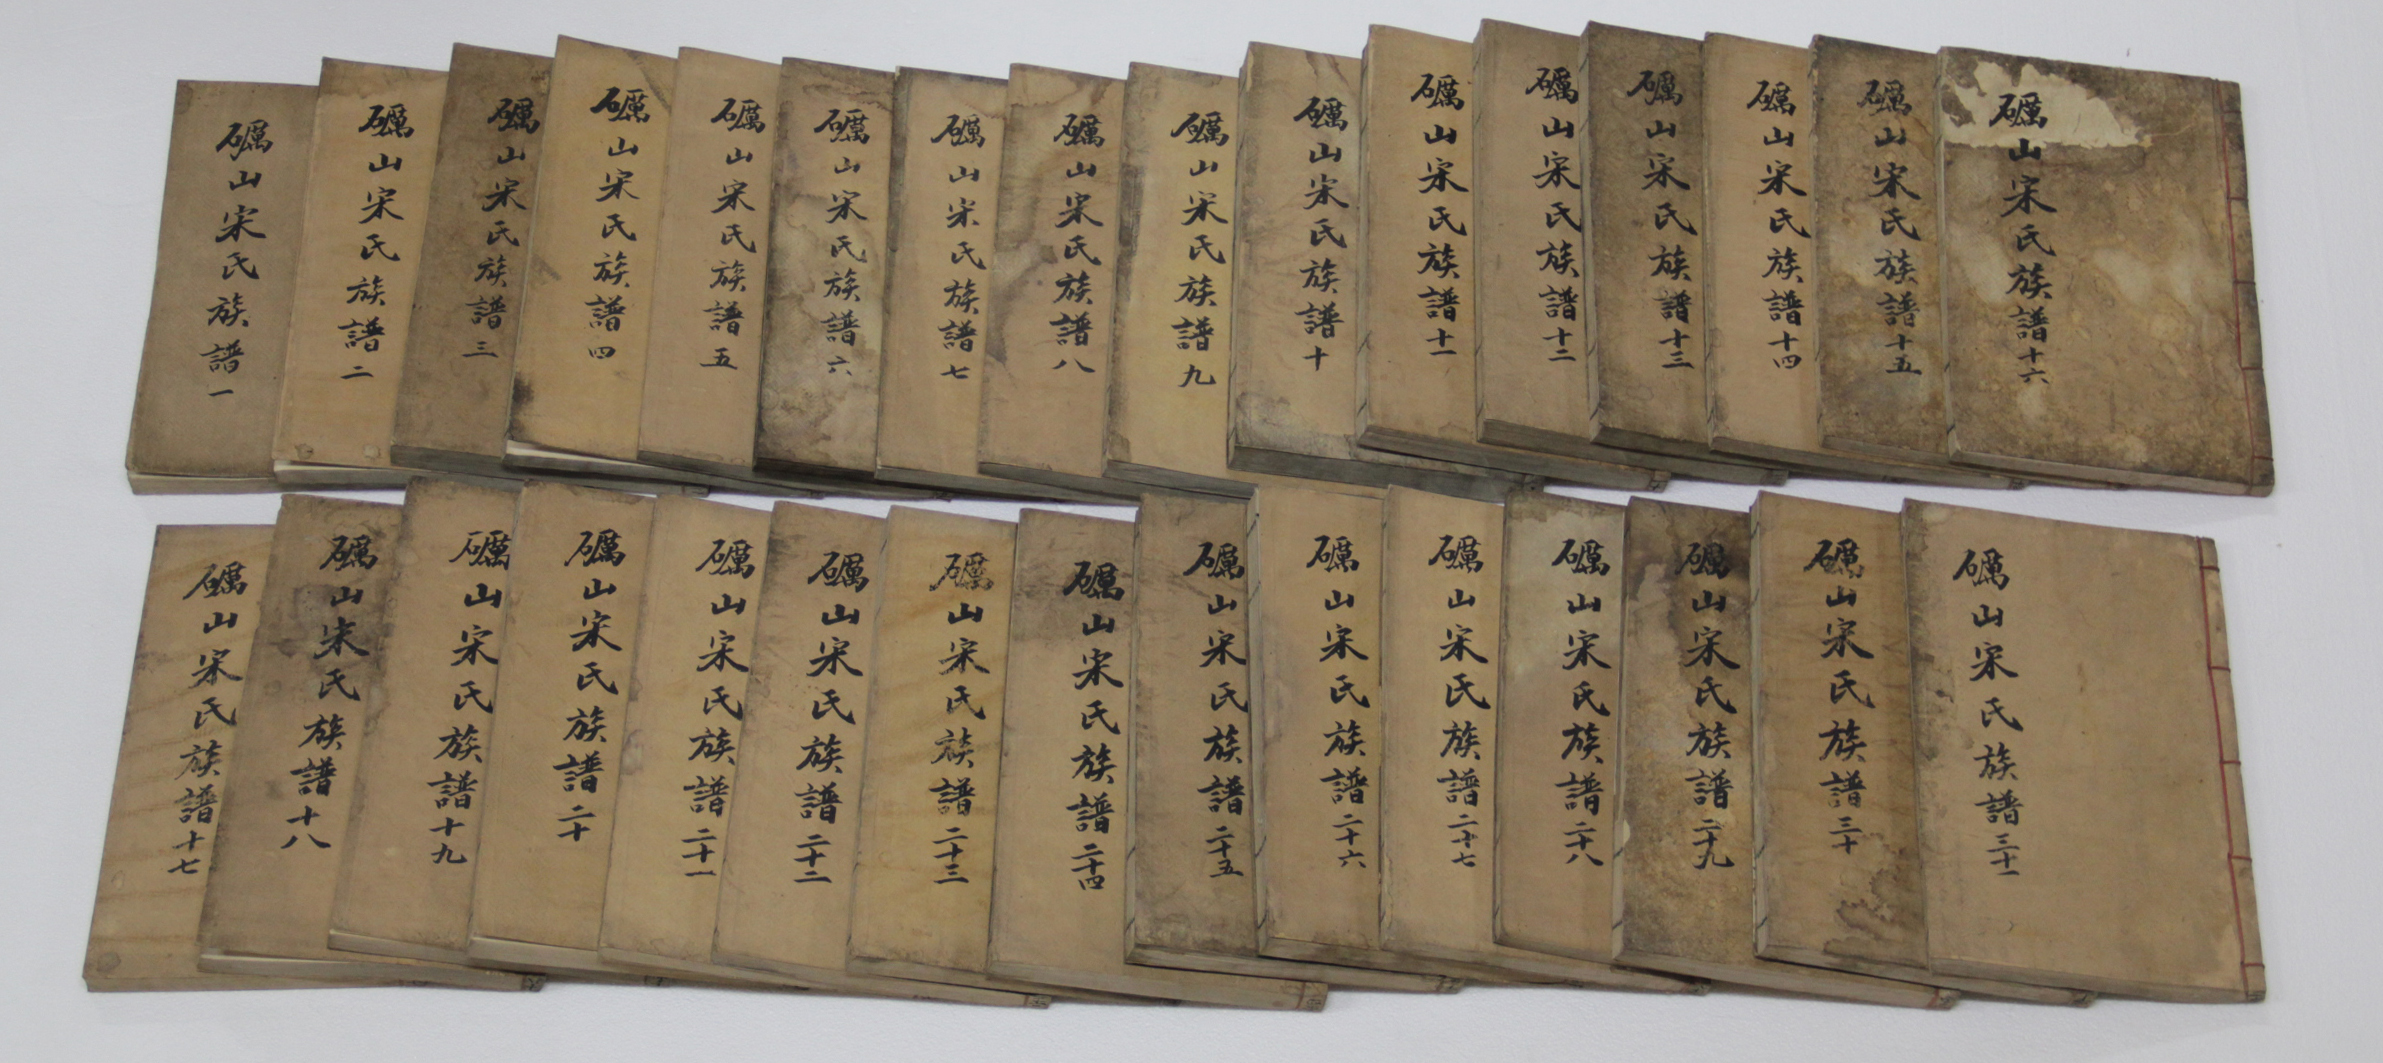 礪山宋氏族譜一
礪山宋氏族譜二
礪山宋氏族譜三
礪山宋氏族譜四
礪山宋氏族譜五
礪山宋氏族譜六
礪山宋氏族譜七
礪山宋氏族譜八
礪山宋氏族譜九
礪山宋氏族譜十
礪山宋氏族譜十一
礪山宋氏族譜十二
礪山宋氏族譜十三
礪山宋氏族譜十四
礪山宋氏族譜十五
礪山宋氏族譜十六
礪山宋氏族譜十七
礪山宋氏族譜十八
礪山宋氏族譜十九
礪山宋氏族譜二十
礪山宋氏族譜二十一
礪山宋氏族譜二十二
礪山宋氏族譜二十三
礪山宋氏族譜二十四
礪山宋氏族譜二十五
礪山宋氏族譜二十六
礪山宋氏族譜二十七
礪山宋氏族譜二十八
礪山宋氏族譜二十九
礪山宋氏族譜三十
礪山宋氏族譜三十一